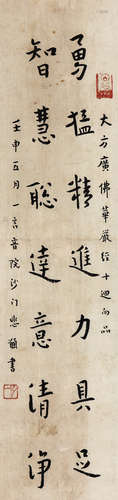 大方廣佛華嚴經十迴向品
勇猛精進力具足
智慧聰達意清淨
壬申五月一言音院沙門書